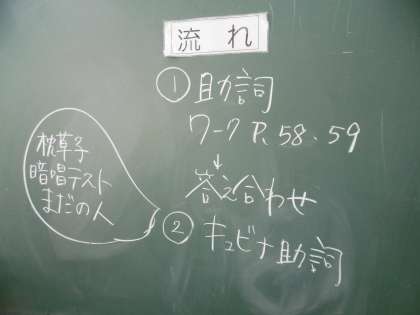 流れ
①助詞
ワーク P.58、59
↓
答え合わせ
②キュビナ助詞
枕草子
暗唱テスト
まだの人